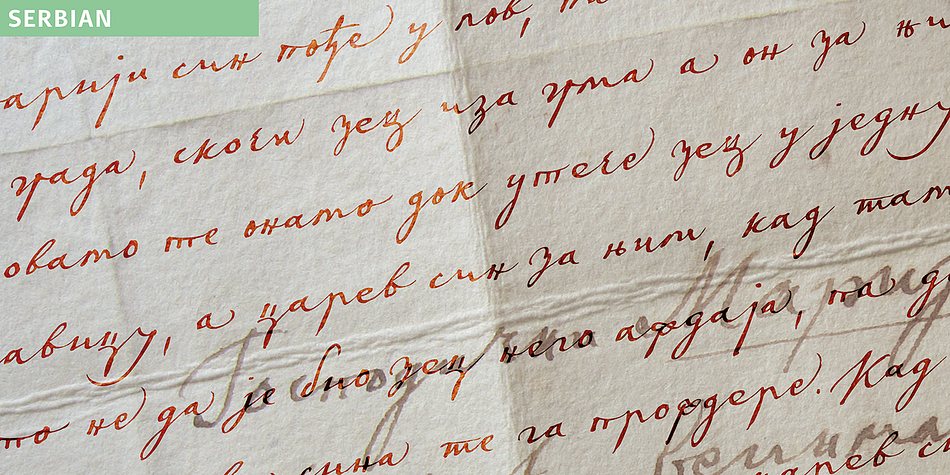 SERBIAN
арији син пође у лов,
града, скочи зец иза грма а он за њи
овамо те онамо док утече зец у једну
авицу, а царев син за њим, кад там
то не да је био зец него аждаја, па д
сина те га прождере. Кад
царев